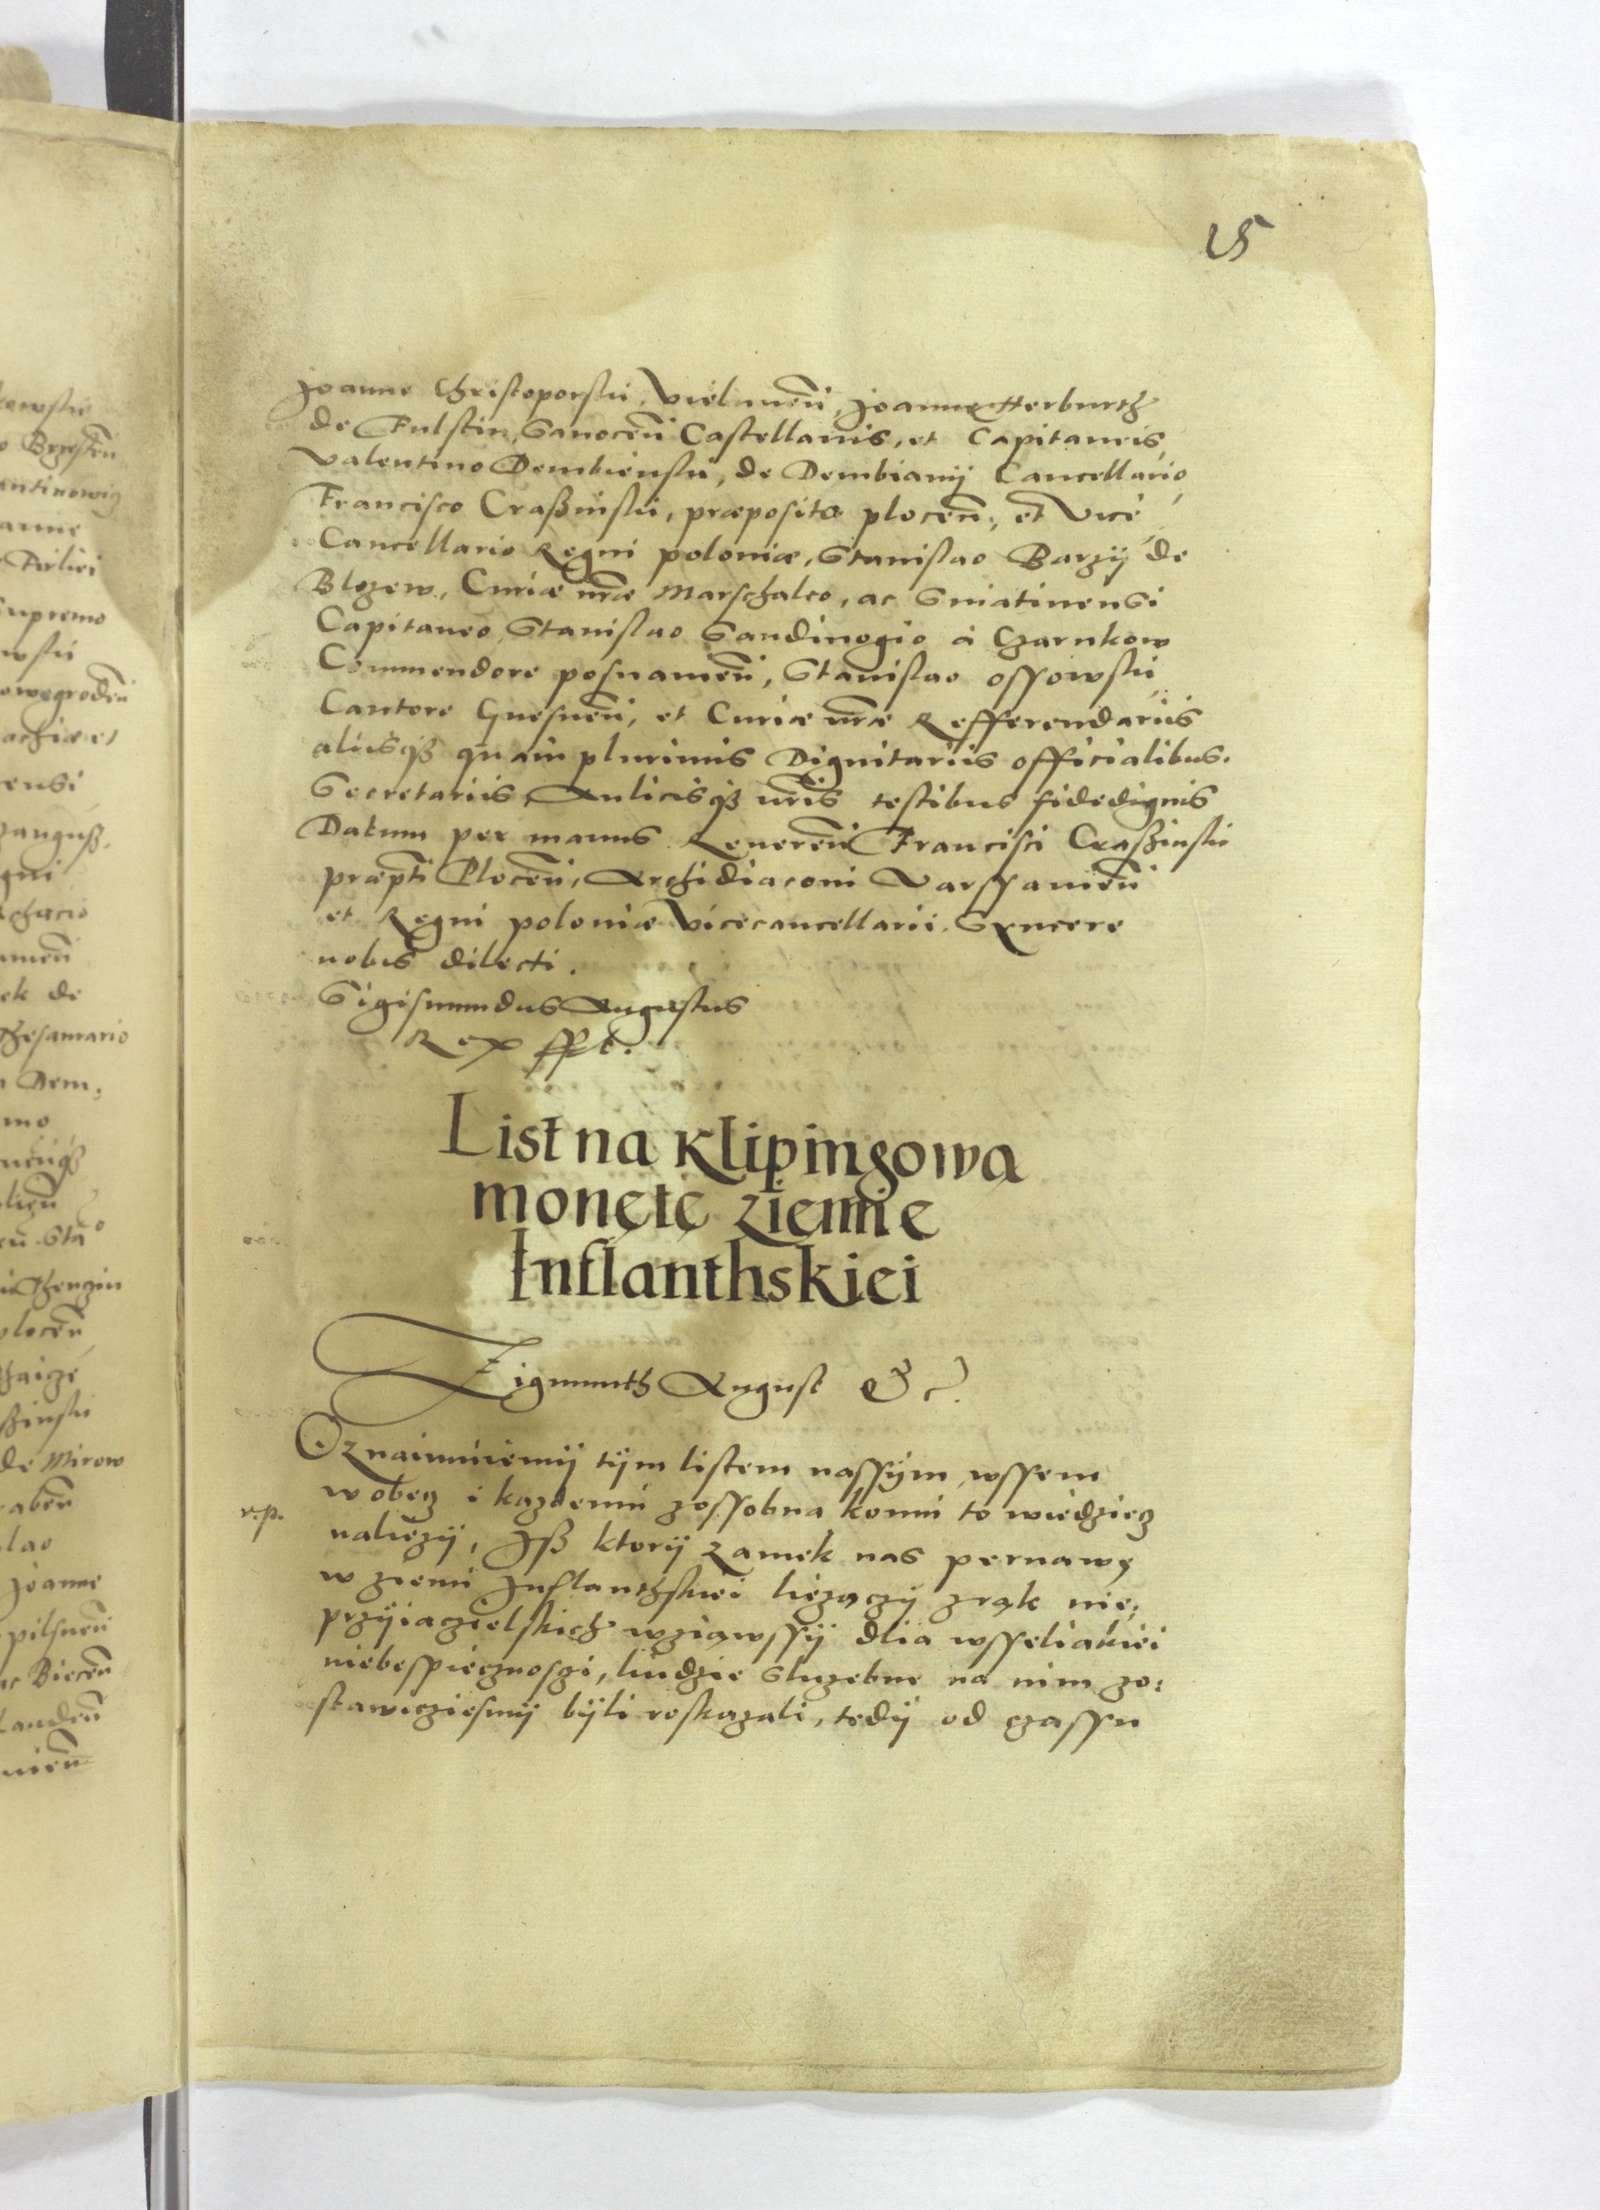 15
Joanne Christoporski, Vielunen̄, Joanne Herburth
de Fulstin, Sanocen̄ Castellanis, et Capitaneis,
Valentino Dembienski, de Dembiany Cancellario,
Francisco Craßinski, præposito plocen̄, et Vice
Cancellario Regni poloniæ, Stanislao Barzÿ de
Blozew, Curiæ nr̄æ Marschalco, ac Sniatinensi
Capitaneo, Stanislao Sandiuogio a Czarnkow
Commendore posnanien̄, Stanislao ossowski
Cantore Gnesnen̄, et Curiæ nr̄æ Refferendariis
aliisqȝ quam plurimis Dignitariis officialibus.
Secretariis, Aulicisqȝ nr̄is testibus fidedignis
Datum per manus Reueren̄ Francisci Craßinski
præpti Plocen̄, Archidiaconi Varssauien̄
et Regni poloniæ Vicecancellarii. Syncere
nobis dilecti.
Sigismundus Augustus
Rex sst.
List na Klipingową
monętę ziemie
Inflanthskiei
Zigmunth August &c.
Oznaimuiemÿ tÿm listem nassÿm, wssem
w obecz i kazdemu zossobna komu to wiedziecz
r.p.
nalieżÿ, Iß ktorÿ Zamek nas pernawę
w ziemi Inflanthskiei liezączÿ zrąk nie;
przÿiaczielskich wziąwssÿ dlia wsseliakiei
niebespiecznosczi, liudzie sluzebne na nim zo:
stawicziesmÿ bÿli roskazali, tedÿ od czassu